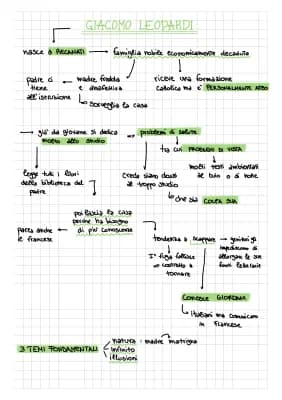 GIACOMO LEOPARDI
nasce a RECANATI → famiglia nobile economicamente decaduta
padre ci
tiene
all'istruzione
madre fredda
e anaffettiva
↳ sorveglia la casa
riceve una formazione
cattolica ma è PERSONALMENTE ATEO
→ già da giovane si dedica
molto allo studio
→ problemi di salute
tra cui PROBLEMI DI VISTA
legge tutti i libri
della biblioteca del
padre
crede siano dovuti
al troppo studio
molti testi ambientati
al buio o di notte
↳ che sia COLPA SUA
poi lascia la casa
perché ha bisogno
di più conoscenze
parla anche
il francese
tendenza a scappare → genitori gli
impediscono di
allargare le sue
1° fuga fallisce
→ costretto a
tornare
CONOSCE GIORDANI
↳ italiani ma comunicano
in francese
3 TEMI FONDAMENTALI
natura: madre matrigna
infinito
illusioni